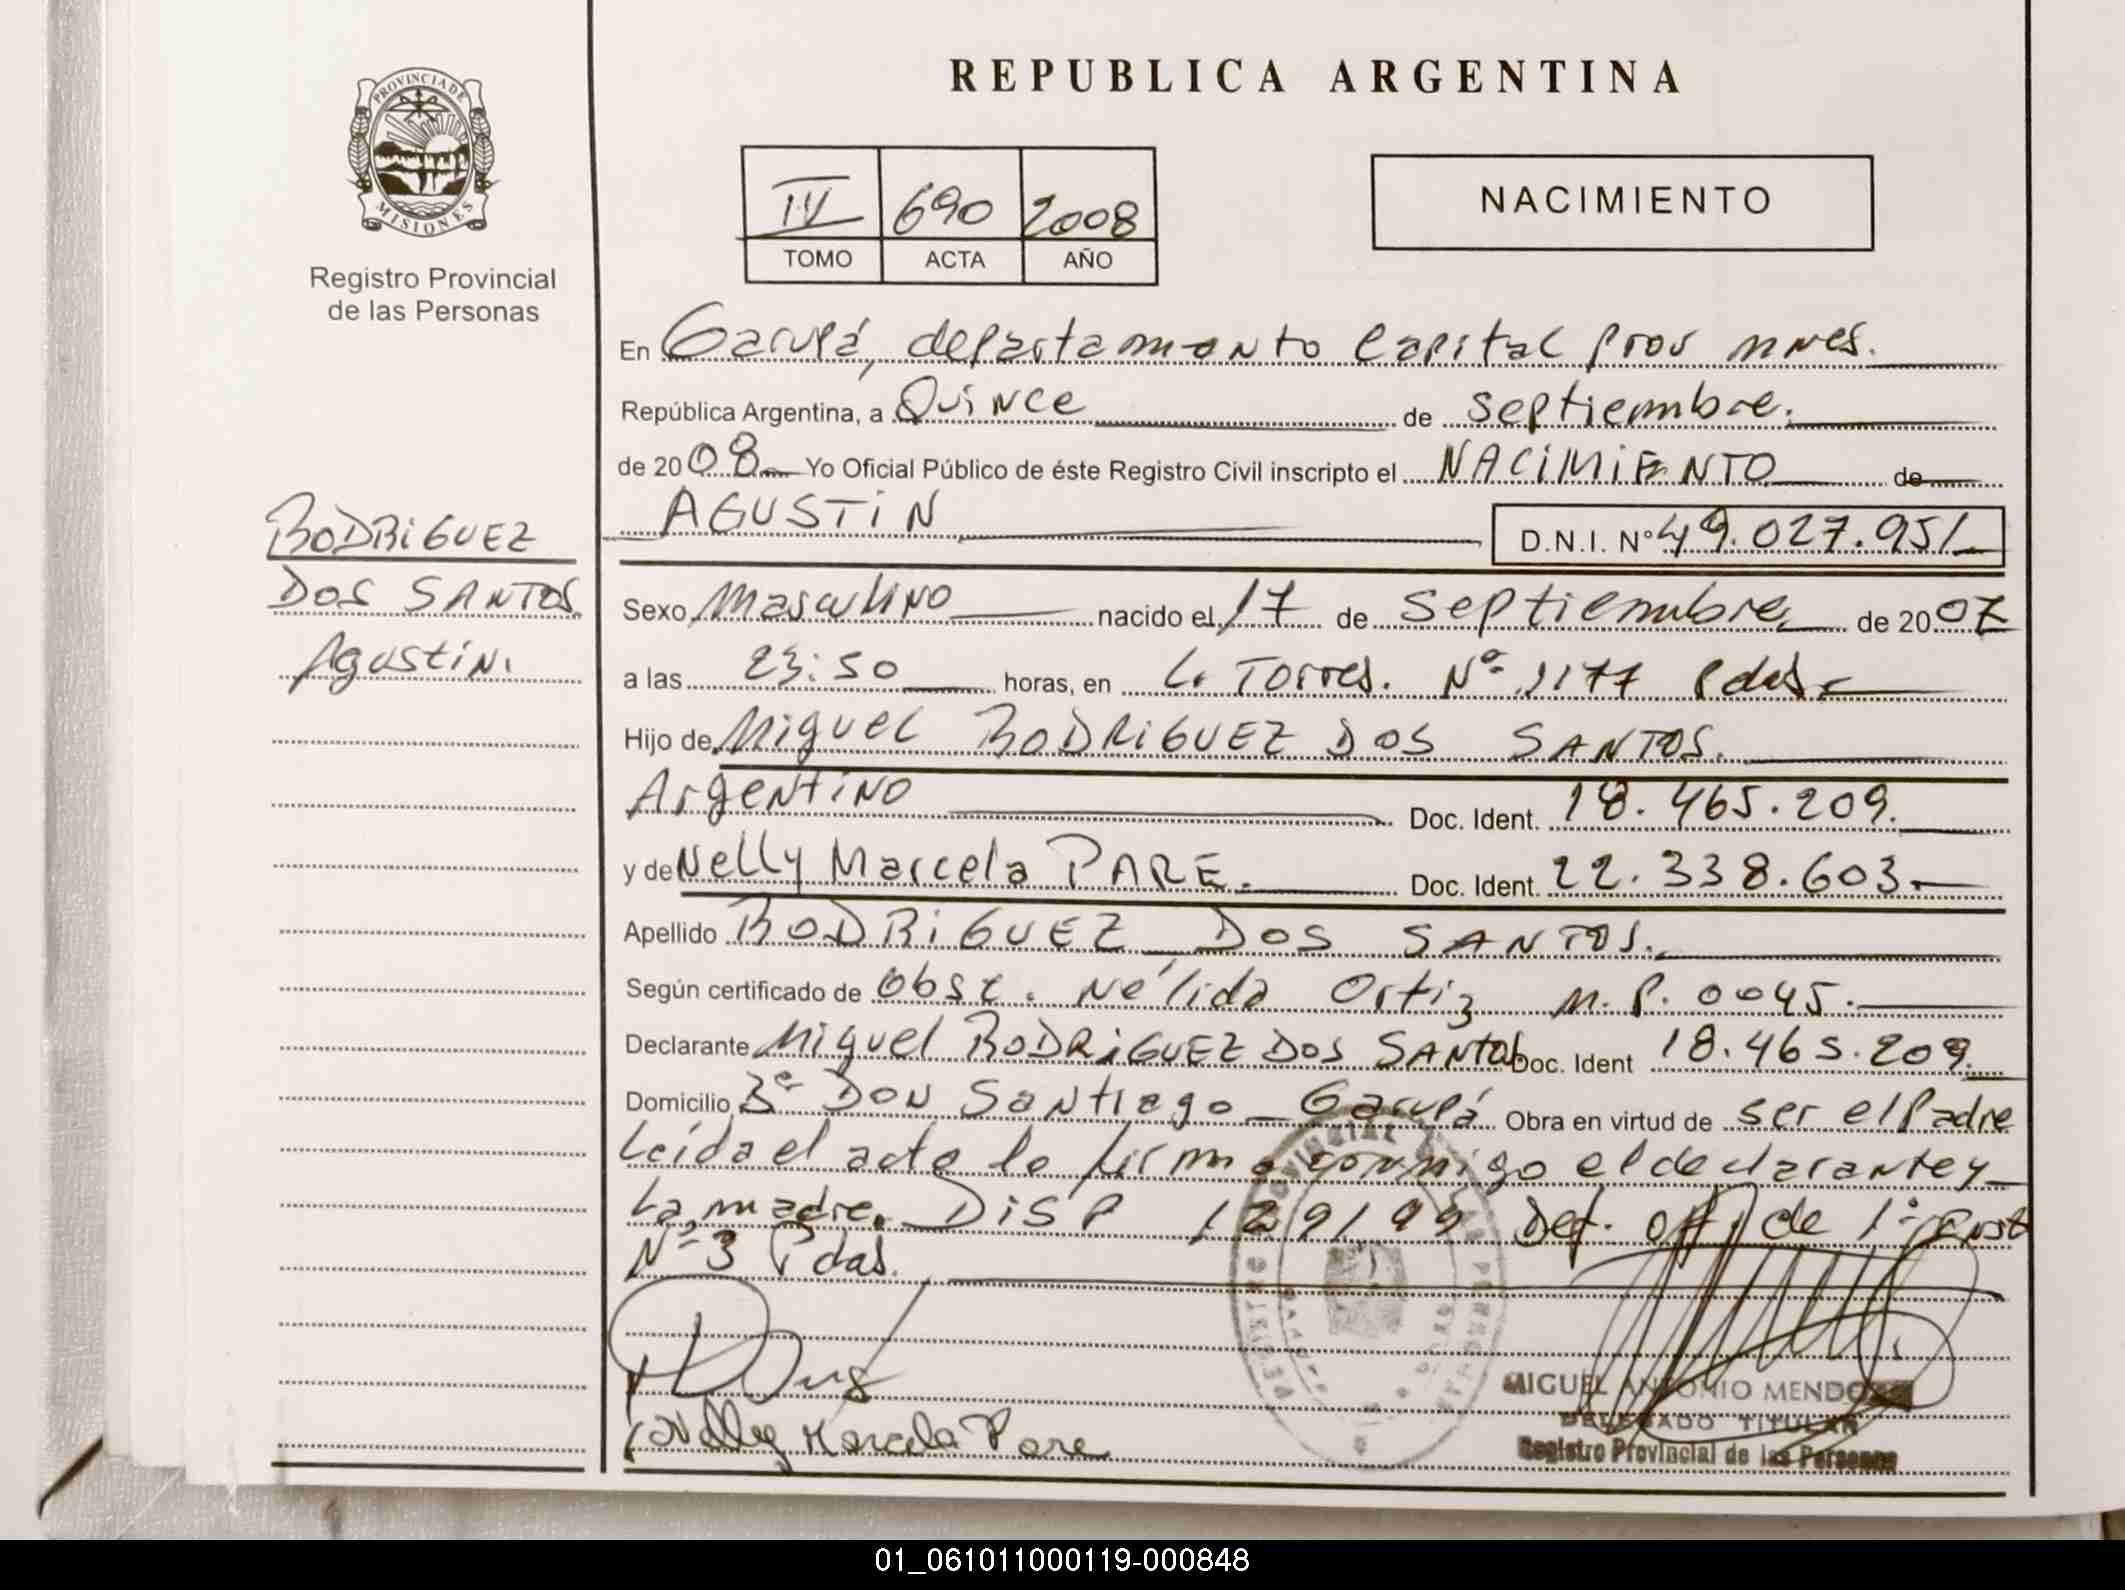 REPUBLICA ARGENTINA
PROVINCIA DE
MISIONES
Registro Provincial
de las Personas
IV 690 2008
TOMO ACTA AÑO
NACIMIENTO
En Garupá, departamento Capital Prov mnes.
República Argentina, a Quince de septiembre.
de 2008 Yo Oficial Público de éste Registro Civil inscripto el NACIMIENTO de
AGUSTIN D.N.I. Nº 49.027.951
RODRIGUEZ
DOS SANTOS
Agustin.
Sexo Masculino nacido el 17 de septiembre de 2007
a las 23:50 horas, en L. Torres. Nº 1177 Pdas
Hijo de Miguel RODRIGUEZ DOS SANTOS.
Argentino Doc. Ident. 18.465.209.
y de Nelly Marcela PARE. Doc. Ident. 22.338.603.
Apellido RODRIGUEZ DOS SANTOS.
Según certificado de Obst. Nélida Ortiz M.P. 0045.
Declarante Miguel RODRIGUEZ DOS SANTOS Doc. Ident 18.465.209.
Domicilio Bº DON Santiago Garupá Obra en virtud de ser el Padre
Leída el acta la firma conmigo el declarante y
La madre. DISP 129/99 Def. Ofi de 1º Inst
Nº 3 Pdas.
Nelly Marcela Pare
MIGUEL ANTONIO MENDOZA
DELEGADO TITULAR
Registro Provincial de las Personas
01_061011000119-000848